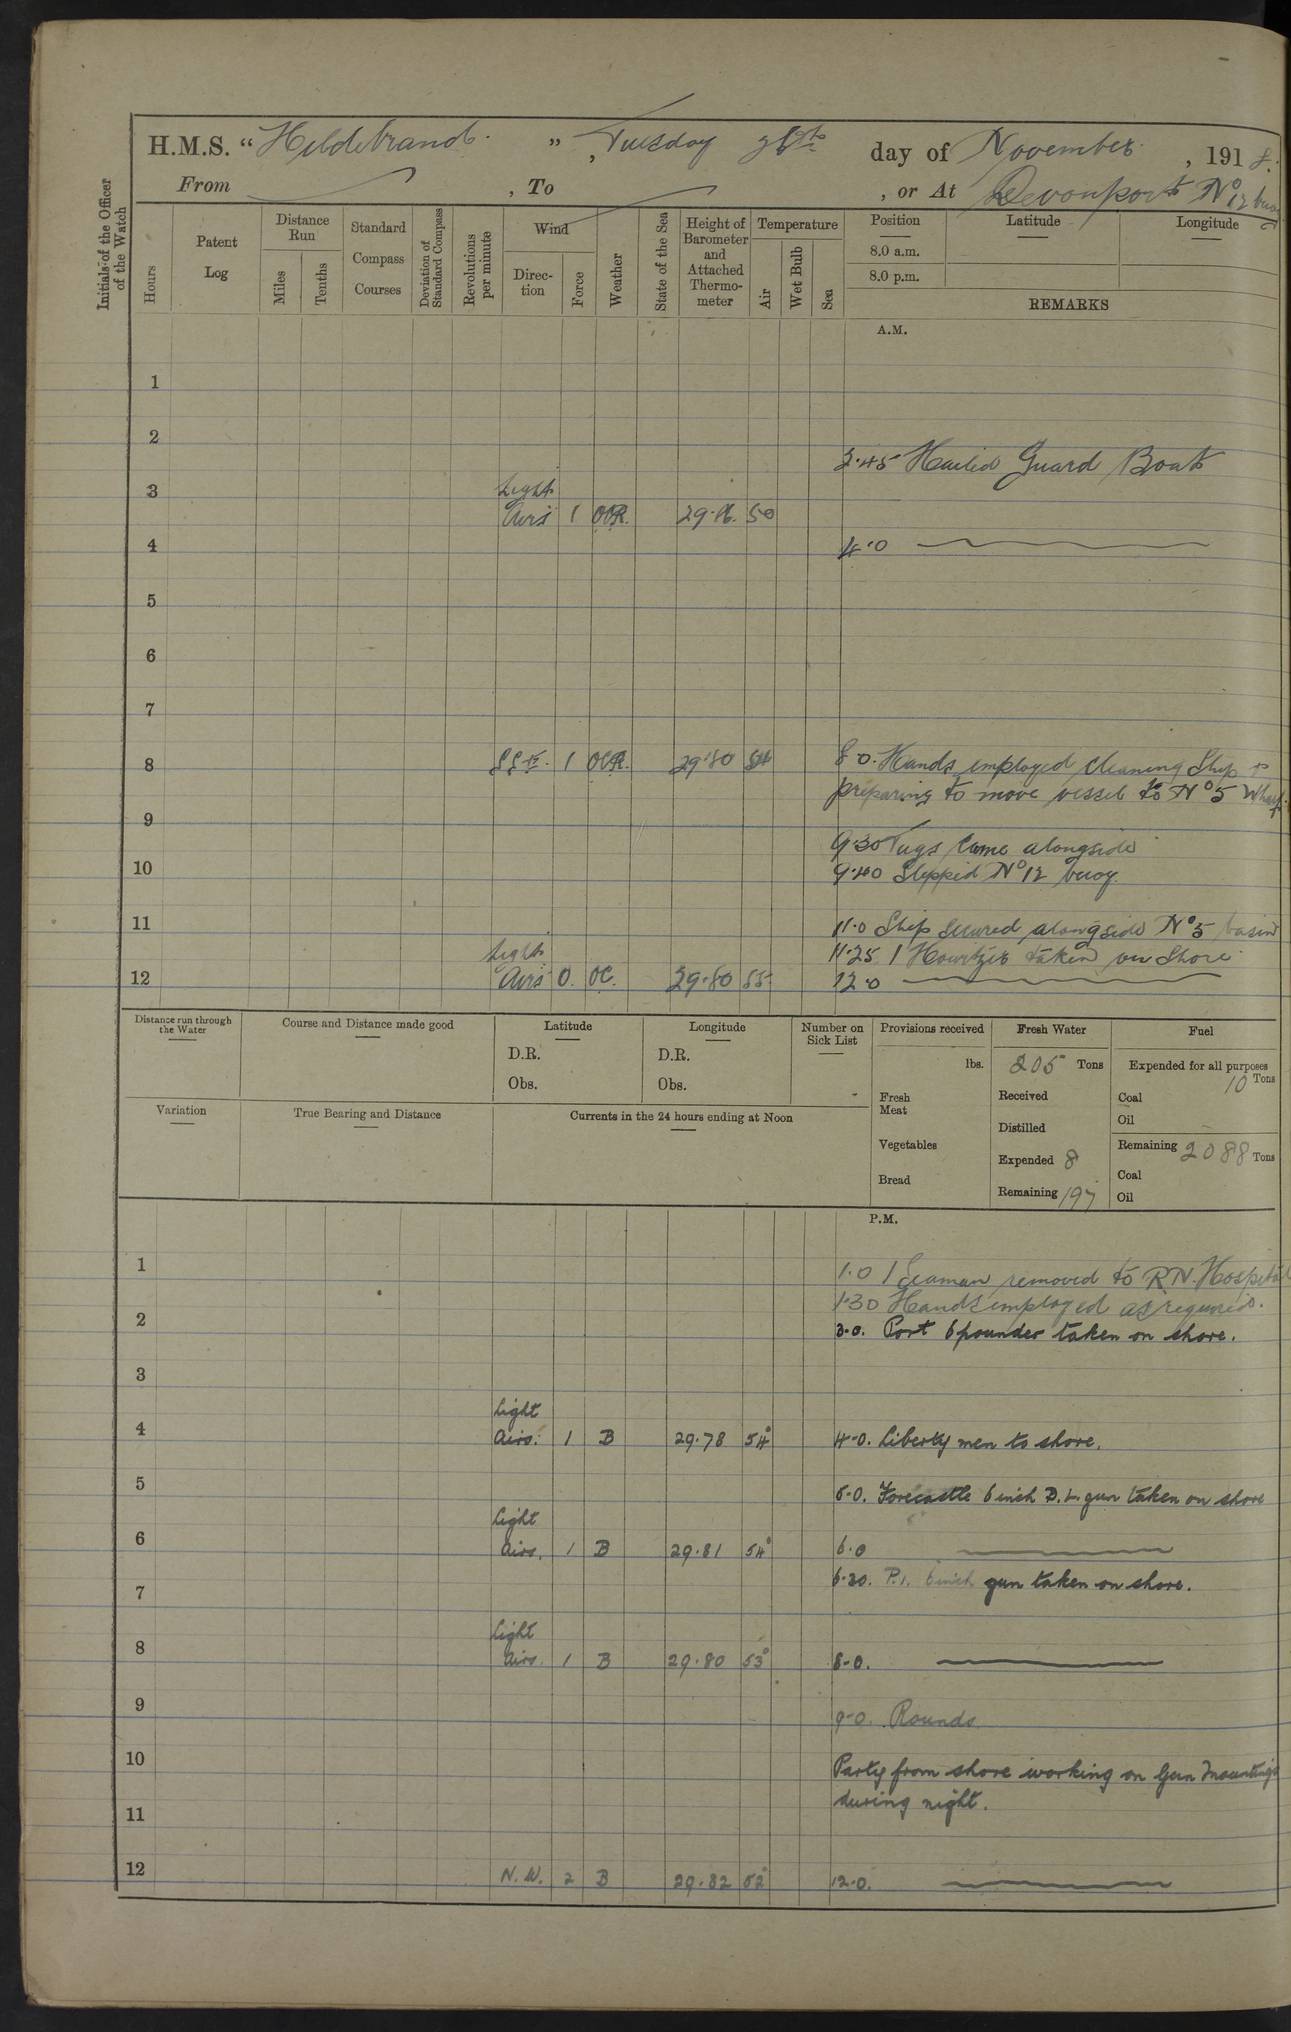 H.M.S. “Hildebrand” , Tuesday 26th day of November , 1918.
From , To , or At Devonport No 12 buoy
Initials of the Officer of the Watch
Hours
Patent Log
Distance Run
Miles
Tenths
Standard Compass Courses
Deviation of Standard Compass
Revolutions per minute
Wind
Direction
Force
Weather
State of the Sea
Height of Barometer and Attached Thermometer
Temperature
Air
Wet Bulb
Sea
Position Latitude Longitude
8.0 a.m.
8.0 p.m.
REMARKS
A.M.
1
2
3.45 Hailed Guard Boat
3 Light
Airs 1 OCR. 50
4 4.0
5
6
7
8 SSE. 1 OCR. 29.80 54 8.0. Hands employed cleaning Ship &
preparing to move vessel to No 5 Wharf.
9
9.30 Tugs came alongside
10 9.40 Slipped No 12 buoy.
11 11.0 Ship secured alongside No 5 basin
Light 11.25 1 Howitzer taken on Shore
12 Airs 0. OC. 29.80 55 12.0
Distance run through the Water
Course and Distance made good
Latitude
D.R.
Obs.
Longitude
D.R.
Obs.
Number on Sick List
Provisions received
lbs.
Fresh Meat
Vegetables
Bread
Fresh Water
205 Tons
Received
Distilled
Expended 8
Remaining 197
Fuel
Expended for all purposes
10 Tons
Coal
Oil
Remaining 2088 Tons
Coal
Oil
Variation
True Bearing and Distance
Currents in the 24 hours ending at Noon
P.M.
1 1.0 1 Seaman removed to R.N. Hospital
1.30 Hands employed as required.
2 3.0. Port 6 pounder taken on shore.
3
Light
4 Airs. 1 B 29.78 54° 4-0. Liberty men to shore.
5 5-0. Forecastle 6 inch B.L. gun taken on shore
Light
6 Airs. 1 B 29.81 54° 6.0
6.30. P.1. 6 inch gun taken on shore.
7
Light
8 Airs. 1 B 29.80 53° 8-0.
9 9-0. Rounds
10 Party from shore working on Gun Mountings
11 during night.
12 N.W. 2 B 29.82 52° 12.0.